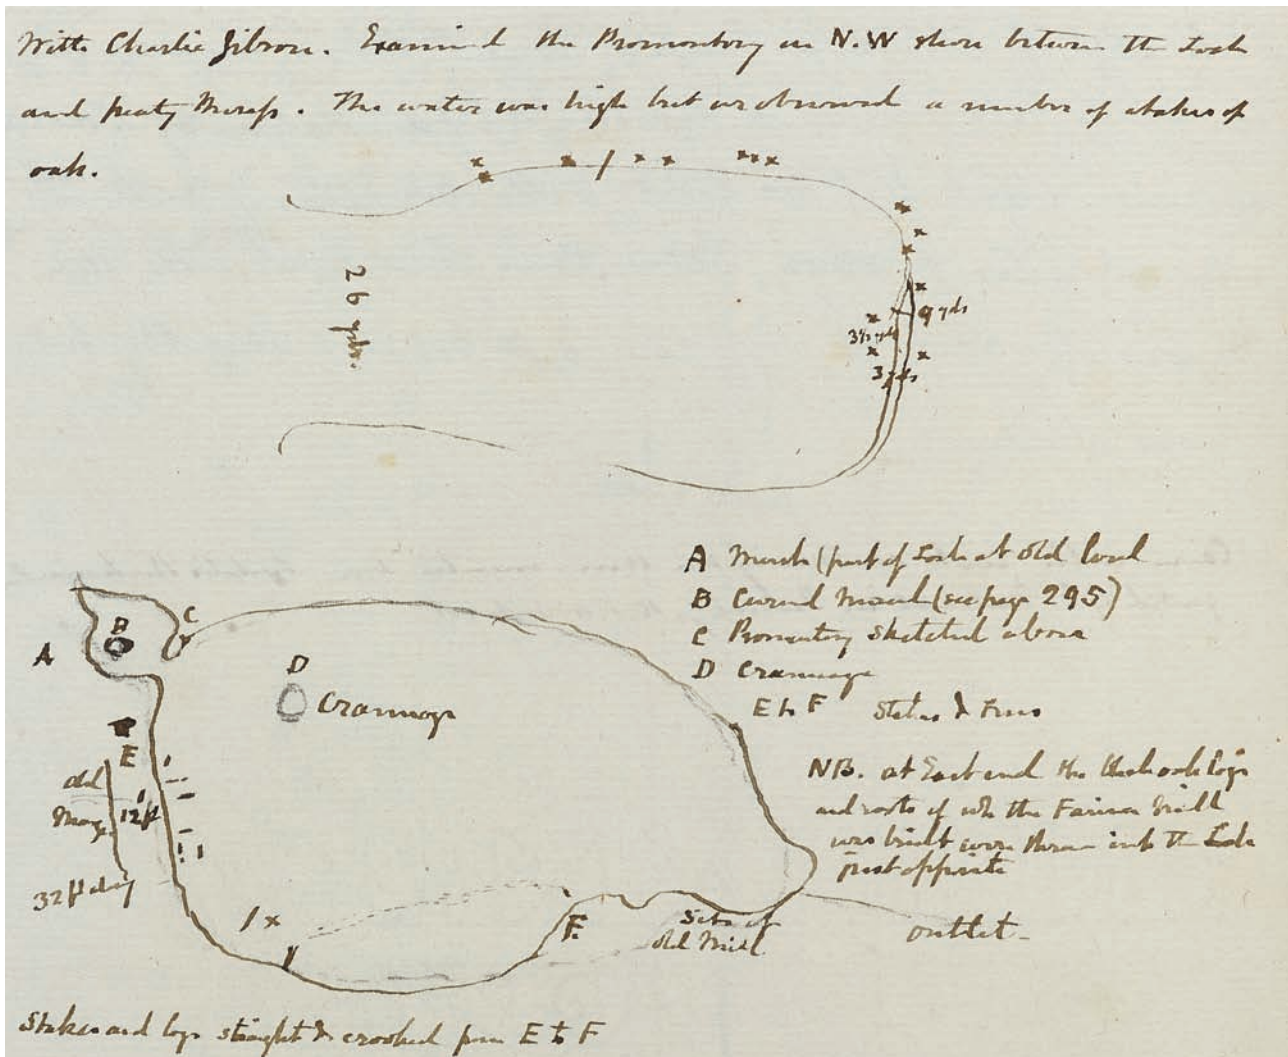 With Charlie Gibson. Examined the Promontory on N.W shore between the Loch
and peaty Morass. The water was high but we observed a number of stakes of
oak.
26 yds.
9 yds
3½ yds
3 yds
A Marsh (part of Loch at old level
B Curved Mound (see page 295)
C Promontory sketched above
D Crannog
E to F Stakes & Trees
B
C
A
D
Crannog
E
old
Margin
12 ft
32 ft
NB. at East end the black oak logs
and roots of wh the Farina Mill
was built were thrown into the Loch
just opposite
F.
Site of
old Mill
outlet
Stakes and logs straight & crooked from E to F